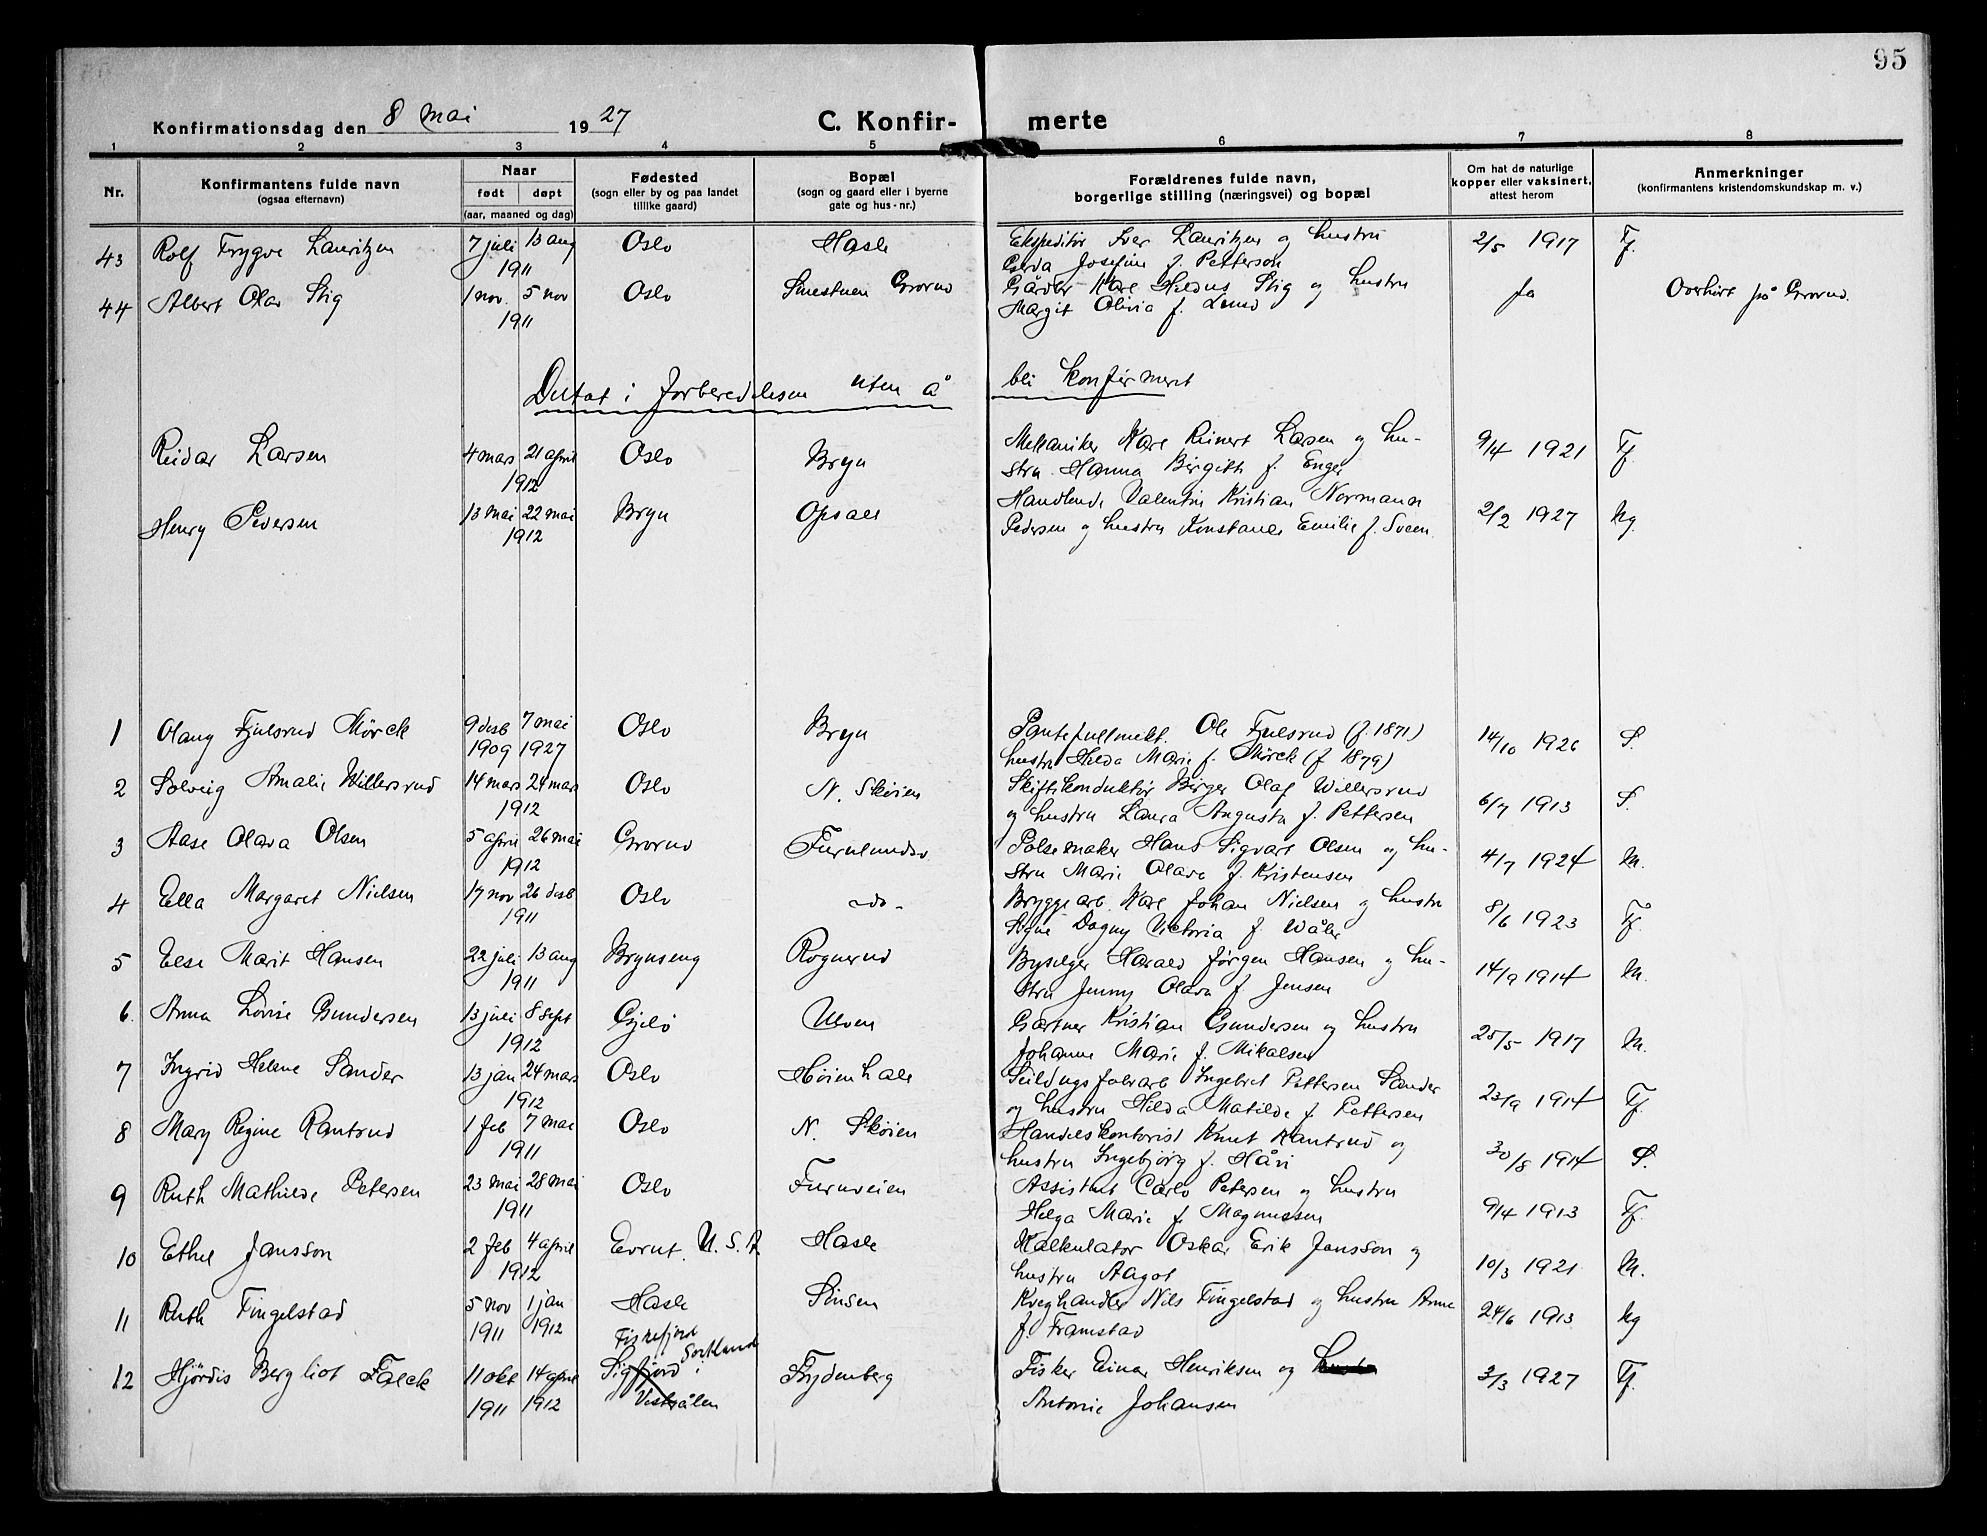 95
Konfirmationsdag den 8 mai 1927
C. Konfirmerte
1 2 3 4 5 6 7 8
Nr.
Konfirmantens fulde navn
(ogsaa efternavn)
Naar
født døpt
(aar, maaned og dag)
Fødested
(sogn eller by og paa landet
tillike gaard)
Bopæl
(sogn og gaard eller i byerne
gate og hus-nr.)
Forældrenes fulde navn,
borgerlige stilling (næringsvei) og bopæl
Om hat de naturlige
kopper eller vaksinert,
attest herom
Anmerkninger
(konfirmantens kristendomskundskap m. v.)
43 Rolf Trygve Lauritzen 7 juli 13 aug Oslo Hasle Ekspeditør Iver Lauritzen og hustru 2/5 1917 Tf.
1911 Gerda Josefine f. Petterson
44 Albert Olav Stig 1 nov. 5 nov Oslo Smestuen Grorud Gårdbr. Karl Hildus Stig og hustru ja Overhørt på Grorud.
1911 Margit Olivia f. Lund
Deltat i forberedelsen uten å bli konfirmert
Reidar Larsen 4 mars 21 april Oslo Bryn Mekaniker Karl Reinert Larsen og hu-
1912 stru Hanna Birgitte f. Enger 9/4 1921 Tf.
Henry Pedersen 13 mai 22 mai Bryn Opsal Handlende Valentin Kristian Normann
1912 Pedersen og hustru Konstance Emilie f. Sveen. 2/2 1927 Ng.
1 Olaug Fjulsrud Mörck 9 desb 7 mai Oslo Bryn Pantefullmekt. Ole Fjulsrud (f. 1871) 14/10 1926 S.
1909 1927 hustru Hilda Marie f. Mörck (f 1879)
2 Solveig Amalie Willersrud 14 mars 24 mars Oslo N. Skøien Skiftekonduktør Birger Olaf Willersrud 6/7 1913 S.
1912 og hustru Laura Augusta f. Pettersen
3 Aase Olava Olsen 5 april 26 mai Grorud Furulund Pølsemaker Hans Sigvart Olsen og hu- 4/7 1924 M.
1912 stru Marie Olava f. Kristensen
4 Ella Margaret Nielsen 17 nov 26 desb Oslo -do- Bryggearb. Karl Johan Nielsen og hustru 8/6 1923 Tf.
1911 Signe Dagny Victoria f. Wåler
5 Else Marit Hansen 22 juli 13 aug Brynseng Rognerud Byselger Harald Jørgen Hansen og hu- 14/9 1914 M.
1911 stru Jenny Olava f. Jensen
6. Anna Lovise Gundersen 13 juli 8 sept Gjeilo Ulven Gartner Kristian Gundersen og hustru 25/5 1917 M.
1912 Johanne Marie f. Mikalsen
7 Ingrid Helene Sander 13 jan 24 mars Oslo Høienhall Seildugsfabrarb Ingebret Pettersen Sander 23/9 1914 Tf.
1912 og hustru Hilda Matilde f. Pettersen
8 Mary Regine Rantrud 1 feb 7 mai Oslo N. Skøien Handelskontorist Knut Rantrud og 30/8 1914 S.
1911 hustru Ingebjørg f. Håvi
9 Ruth Mathilde Petersen 23 mai 28 mai Oslo Furuveien Assistent Carlo Petersen og hustru 9/4 1913 Tf.
1911 Helga Marie f. Magnussen
10 Ethel Jansson 2 feb 4 april U. S. A Hasle Kalkulator Oskar Erik Jansson og 10/3 1921 M.
1912 hustru Aagot
11 Ruth Tingelstad 5 nov 1 jan Hasle Sinsen Kveghandler Nils Tingelstad og hustru Anne 24/6 1913 Ng
1911 1912 f. Framstad
Fiskefjord
Sortland
12 Hjördis Bergliot Falck 11 okt 14 april Sigfjord i Frydenberg Fisker Einar Henriksen og hustru 3/3 1927 Tf.
1911 1912 Vesterålen Antonie Johansen